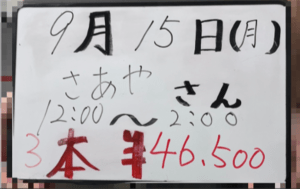 9月15日(月)
さあや さん
12:00〜2:00
3本 ¥46.500